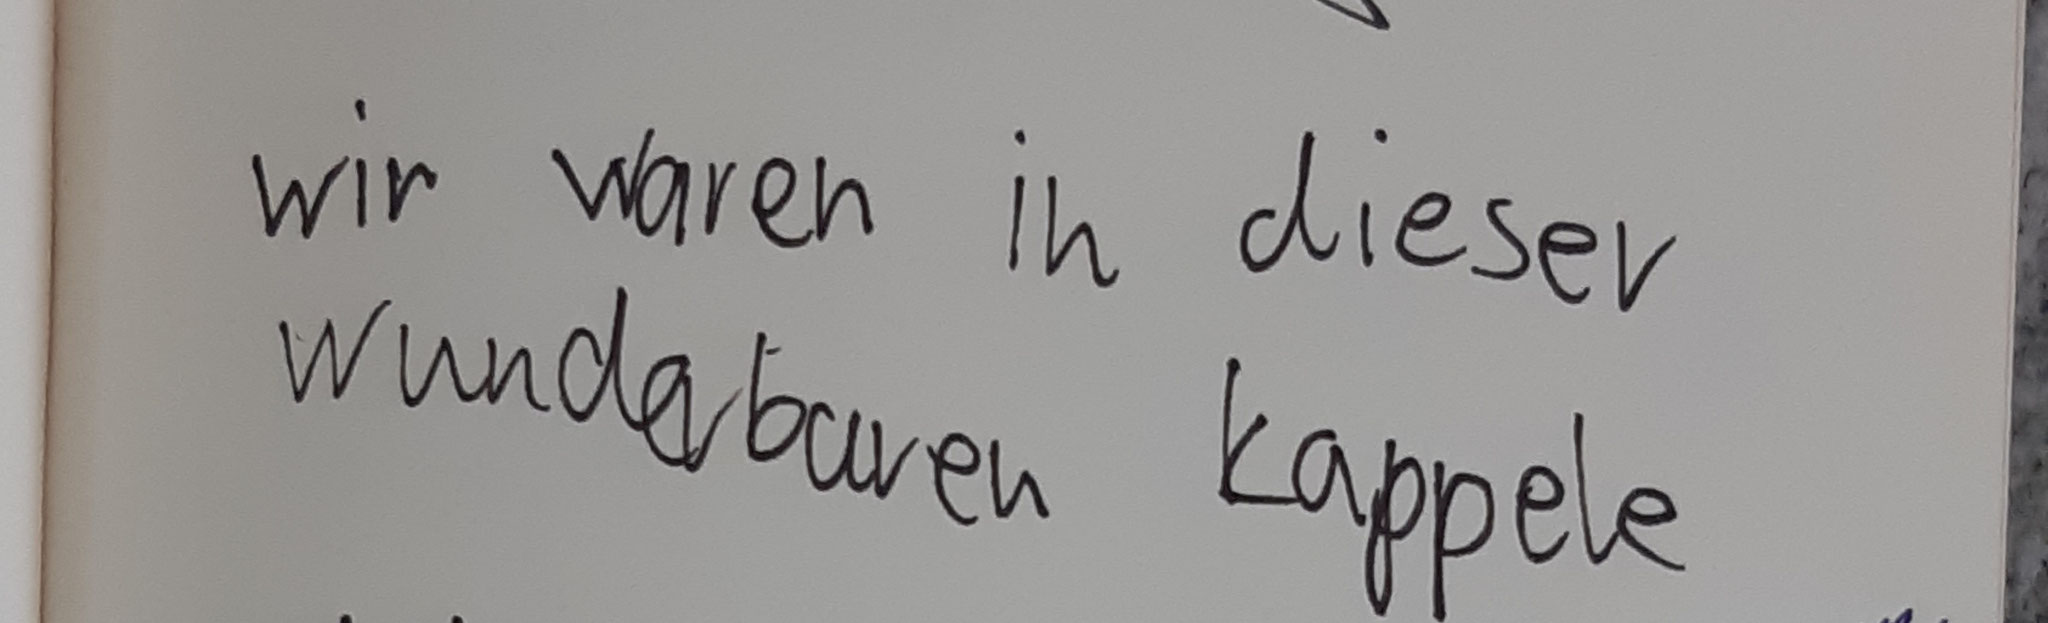 wir waren in dieser
wunderbaren kappele